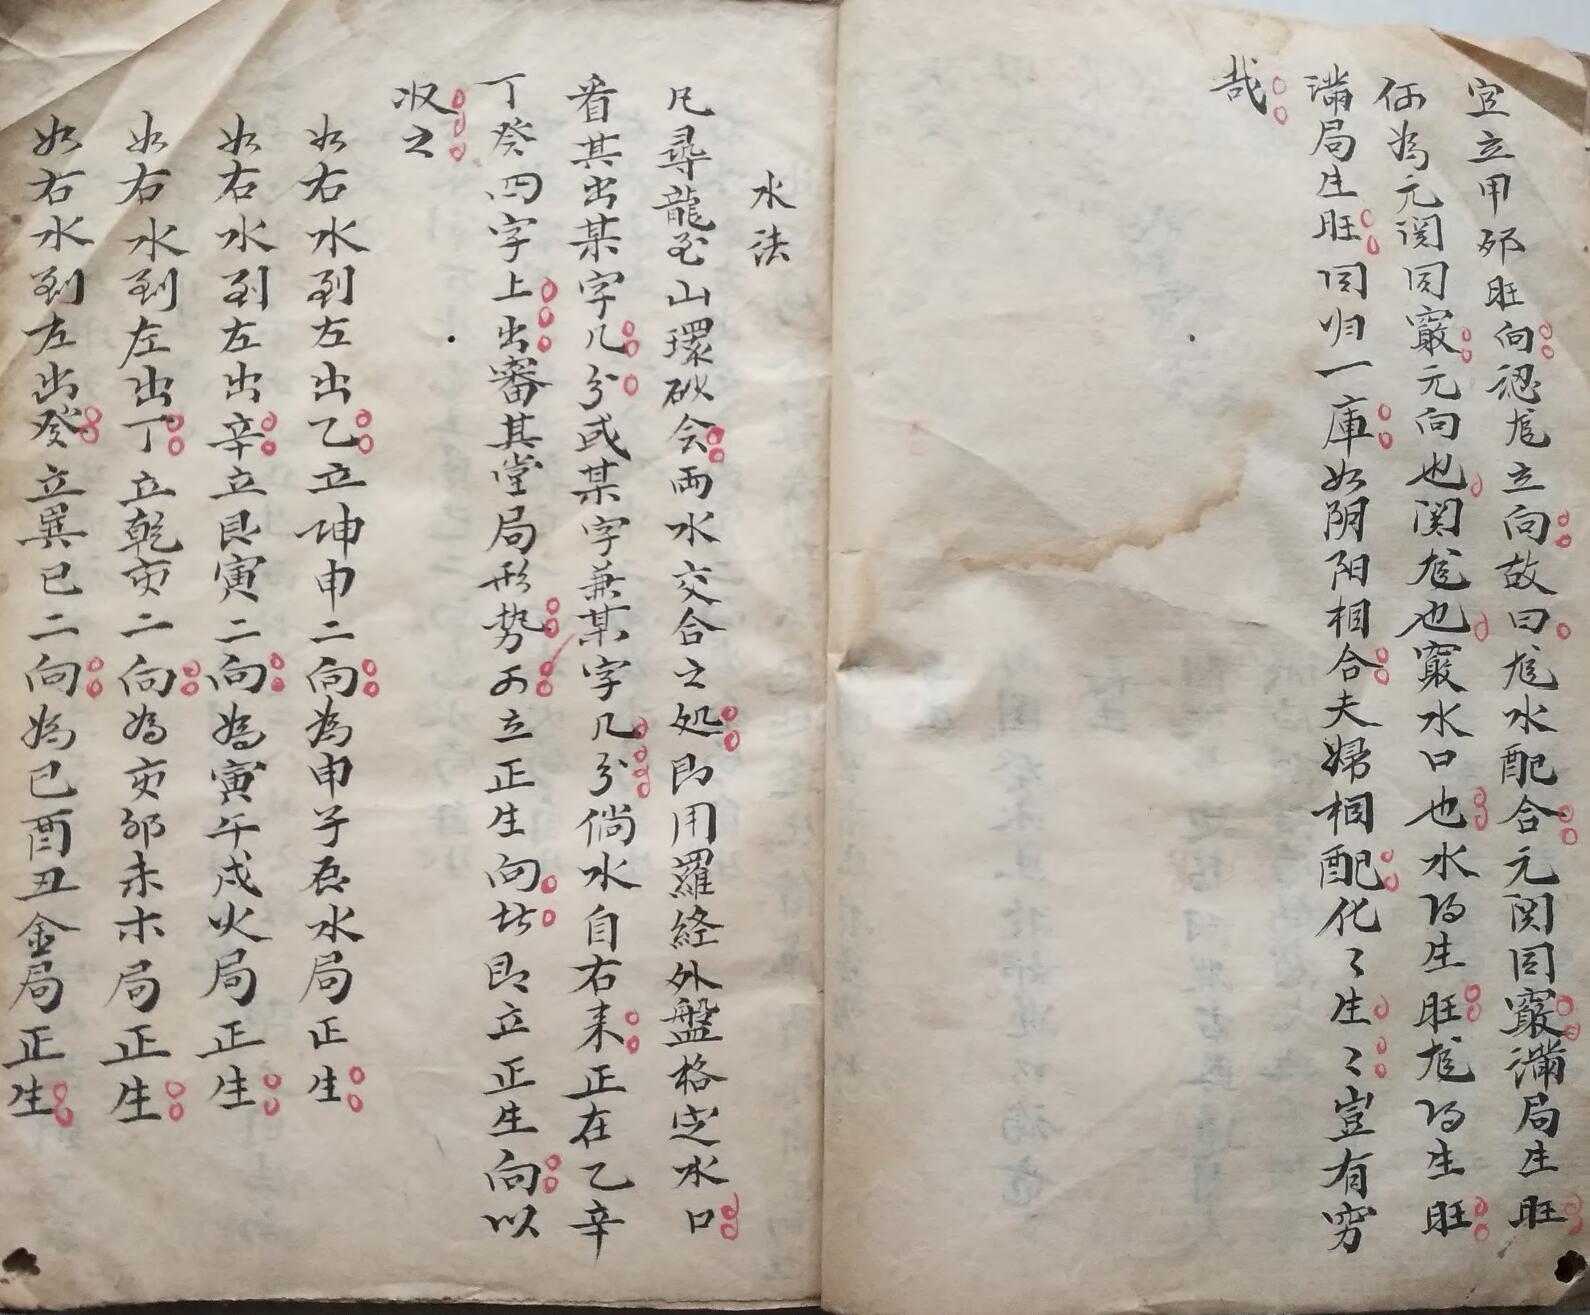 宜立甲夘旺向認龙立向故曰龙水配合元関同竅满局生旺
何為元関同竅元向也関龙也竅水口也水得生旺龙得生旺
满局生旺同归一庫如阴阳相合夫婦相配化〻生〻豈有穷
哉
水法
凡尋龍至山環砂会両水交合之処即用羅経外盤格定水口
看其出某字几分或某字兼某字几分倘水自右来正在乙辛
丁癸四字上出審其堂局形势可立正生向者即立正生向以
収之
如右水到左出乙立坤申二向為申子辰水局正生
如右水到左出辛立艮寅二向為寅午戌火局正生
如右水到左出丁立乾亥二向為亥卯未木局正生
如右水到左出癸立巽巳二向為巳酉丑金局正生